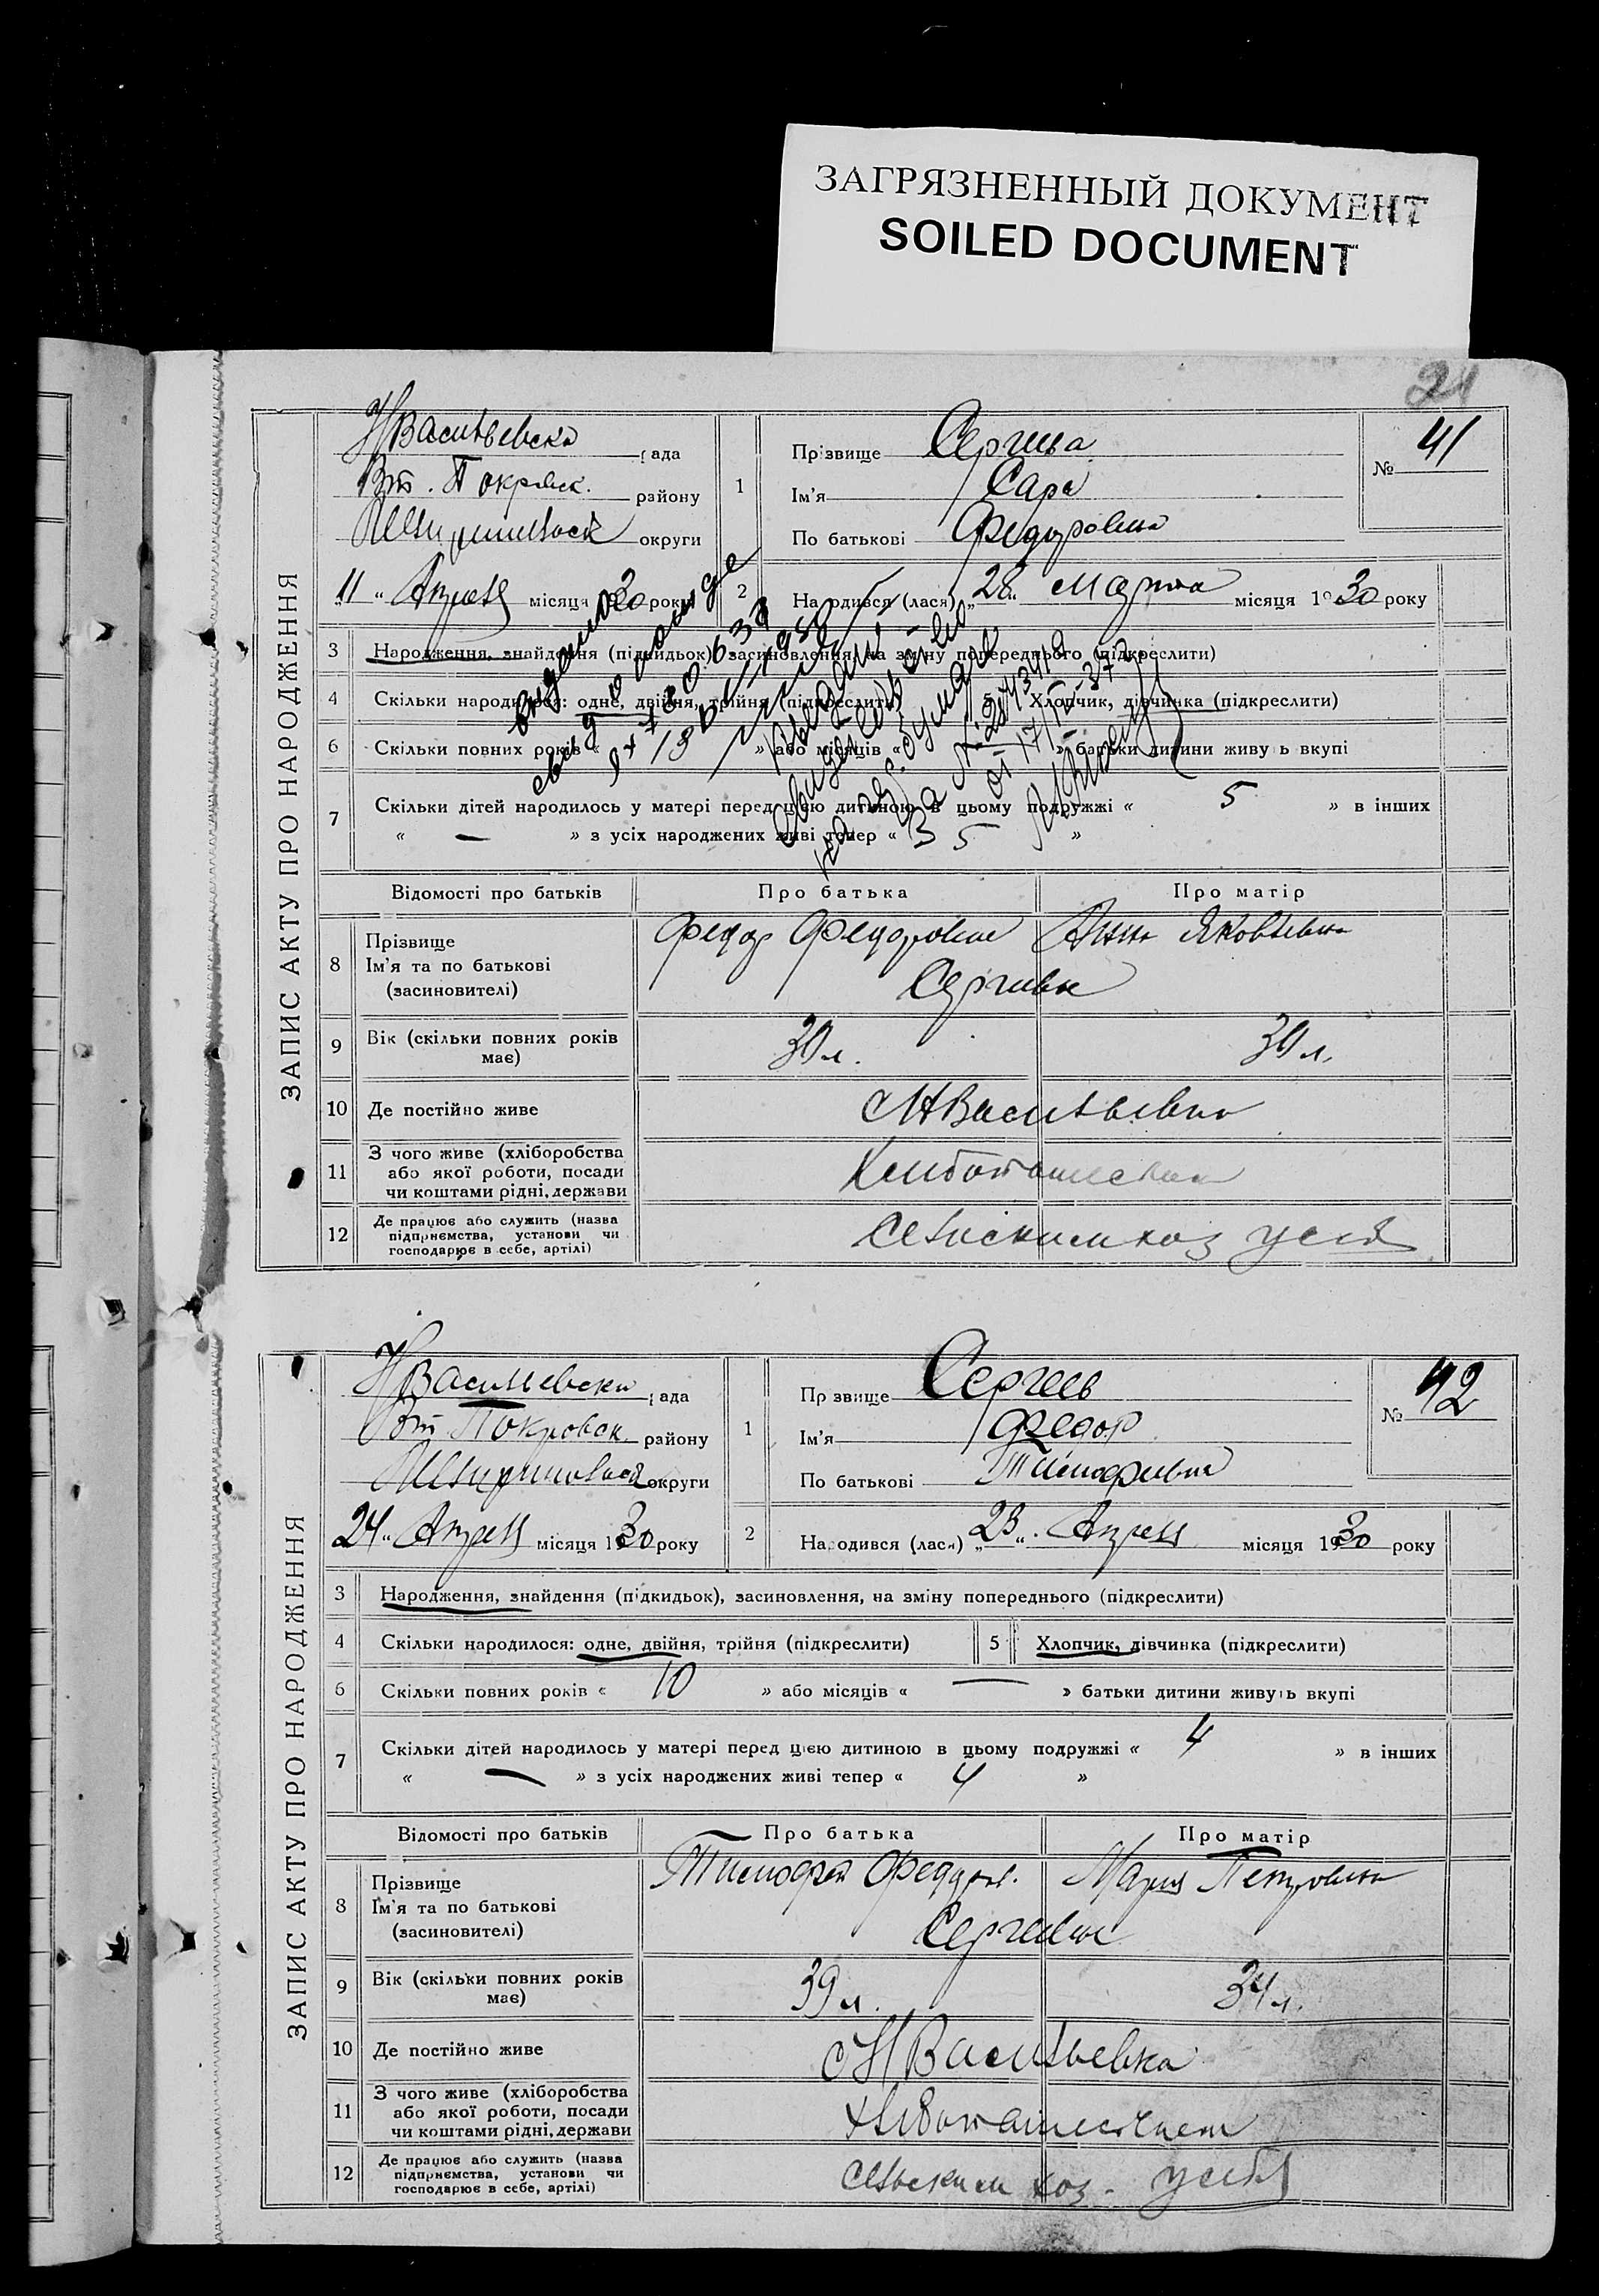 ЗАГРЯЗНЕННЫЙ ДОКУМЕНТ
SOILED DOCUMENT
21
ЗАПИС АКТУ ПРО НАРОДЖЕННЯ
НВасильевска рада
Вт. Покровск. району
округи
1
Прізвище Сергиева
Ім'я Сара
По батькові Федоровна
№ 41
„11“ Апреля місяця 1930 року
2 Народився (лася) „28“ Марта місяця 1930 року
3 Народження, знайдення (підкидьок), засиновлення, на зміну попереднього (підкреслити)
4 Скільки народилося: одне, двійня, трійня (підкреслити) 5 Хлопчик, дівчинка (підкреслити)
6 Скільки повних років « » або місяців « » батьки дитини живуть вкупі
7 Скільки дітей народилось у матері перед цією дитиною в цьому подружжі « 5 » в інших
« — » з усіх народжених живі тепер « 5 »
Відомості про батьків Про батька Про матір
8 Прізвище
Ім'я та по батькові
(засиновителі)
Федор Федорович Анна Яковлевна
9 Вік (скільки повних років має) 39 л. 39 л.
10 Де постійно живе с НВасильевка
11 З чого живе (хліборобства
або якої роботи, посади
чи коштами рідні, держави
12 Де працює або служить (назва
підприємства, установи чи
господарює в себе, артілі)
Сельским хоз у себя
ЗАПИС АКТУ ПРО НАРОДЖЕННЯ
НВасильевска рада
Вт Покровск. району
округи
1
Прізвище Сергеев
Ім'я Федор
По батькові
№ 42
24 „ Апреля місяця 1930 року
2 Народився (лася) „23“ Апреля місяця 1930 року
3 Народження, знайдення (підкидьок), засиновлення, на зміну попереднього (підкреслити)
4 Скільки народилося: одне, двійня, трійня (підкреслити) 5 Хлопчик, дівчинка (підкреслити)
6 Скільки повних років « 10 » або місяців « — » батьки дитини живуть вкупі
7 Скільки дітей народилось у матері перед цією дитиною в цьому подружжі « 4 » в інших
« — » з усіх народжених живі тепер « 4 »
Відомості про батьків Про батька Про матір
8 Прізвище
Ім'я та по батькові
(засиновителі)
Тимофей Федоров. Мария Петровна
9 Вік (скільки повних років має) 39 л. 34 л.
10 Де постійно живе с НВасильевка
11 З чого живе (хліборобства
або якої роботи, посади
чи коштами рідні, держави
12 Де працює або служить (назва
підприємства, установи чи
господарює в себе, артілі)
сельским хоз. у себя